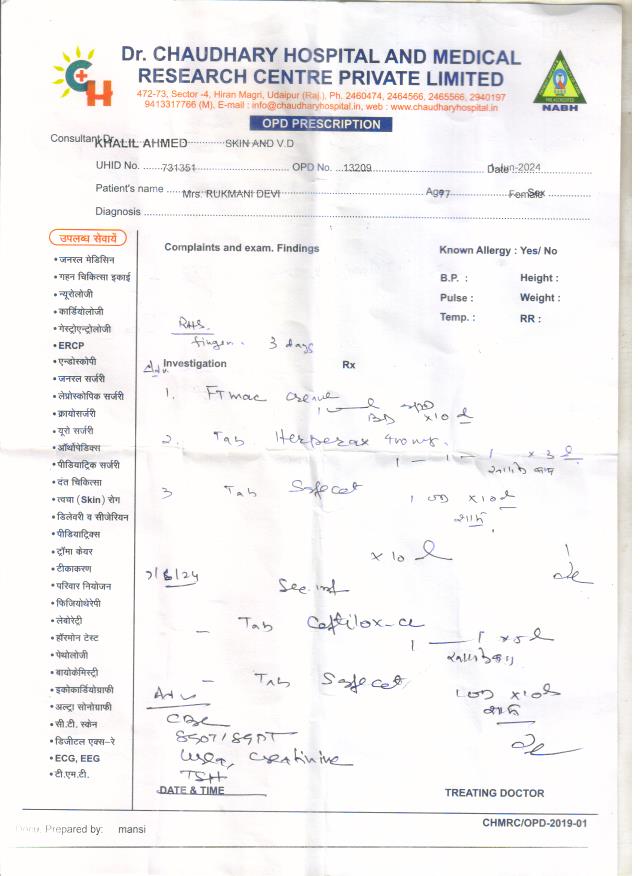 Dr. CHAUDHARY HOSPITAL AND MEDICAL
RESEARCH CENTRE PRIVATE LIMITED
472-73, Sector -4, Hiran Magri, Udaipur (Raj.), Ph. 2460474, 2464566, 2465566, 2940197
9413317766 (M), E-mail : info@chaudharyhospital.in, web : www.chaudharyhospital.in
NABH
OPD PRESCRIPTION
Consultant Dr. KHALIL AHMED SKIN AND V.D
UHID No. 731351 OPD No. 13209 Date Jun-2024
Patient's name Mrs. RUKMANI DEVI Age Female Sex
Diagnosis
उपलब्ध सेवायें
Complaints and exam. Findings
Known Allergy : Yes/ No
• जनरल मेडिसिन
• गहन चिकित्सा इकाई
B.P. : Height :
• न्यूरोलोजी
Pulse : Weight :
• कार्डियोलोजी
Temp. : RR :
• गेस्ट्रोएन्ट्रोलोजी
• ERCP
finger. 3 days
• एन्डोस्कोपी
Adv. Investigation Rx
• जनरल सर्जरी
• लेप्रोस्कोपिक सर्जरी
1. cream
BD x10 d
• क्रायोसर्जरी
• यूरो सर्जरी
2. Tab Herperax 400 mg.
• ऑर्थोपेडिक्स
1 - 1 - 1 x 3 d
• पीडियाट्रिक सर्जरी
• दंत चिकित्सा
3 Tab
1 OD x10 d
• त्वचा (Skin) रोग
• डिलेवरी व सीजेरियन
• पीडियाट्रिक्स
• ट्रॉमा केयर
x 10 d
• टीकाकरण
• परिवार नियोजन
• फिजियोथेरेपी
• लेबोरेट्री
- Tab
• हॉरमोन टेस्ट
• पेथोलोजी
• बायोकेमिस्ट्री
- Tab
• इकोकार्डियोग्राफी
Adv
1 OD x10 d
• अल्ट्रा सोनोग्राफी
CBC
• सी.टी. स्केन
SGOT/SGPT
• डिजीटल एक्स-रे
Urea, Creatinine
• ECG, EEG
TSH
• टी.एम.टी.
DATE & TIME
TREATING DOCTOR
CHMRC/OPD-2019-01
Docu. Prepared by: mansi